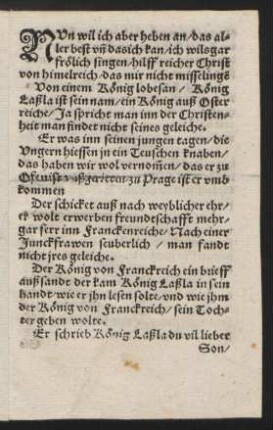 NUn wil ich aber heben an/das al-
ler best vñ das ich kan/ich wils gar
frölich singen/hilff reicher Christ
von himelreich/das mir nicht misselinge
Von einem König lobesan/König
Laßla ist sein nam/ein König auß Oster
reiche/Ja spricht man inn der Christen-
heit man findet nicht seines geleiche.
Er was inn seinen jungen tagen/die
Ungern hiessen in ein Teuschen knaben/
das haben wir wol vernomẽn/das er zu
zu Prage ist er vmb
kommen
Der schicket auß nach weyblicher ehr/
er wolt erwerben freundtschafft mehr-
gar ferr inn Franckenreiche/Nach einer
Junckfrawen seuberlich/man fandt
nicht jres geleiche.
Der König von Franckreich ein brieff
außsandt der kam König Laßla in sein
handt/wie er jhn lesen solte/vnd wie jhm
der König von Franckreich/sein Toch-
ter geben wolte.
Er schrieb König Laßla du vil lieber
Son/